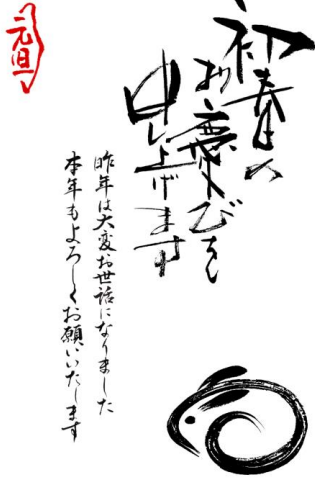 初春の
お慶びを
申し上げます
昨年は大変お世話になりました
本年もよろしくお願いいたします
元旦